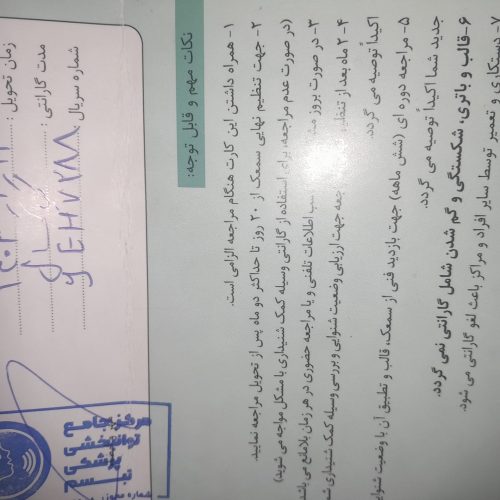 نکات مهم و قابل توجه:
۱- همراه داشتن این کارت هنگام مراجعه الزامی است.
۲- جهت تنظیم نهایی سمعک از ۲۰ روز تا حداکثر دو ماه پس از تحویل مراجعه نمایید.
(در صورت عدم مراجعه، برای استفاده از گارانتی وسیله کمک شنیداری با مشکل مواجه می شوید)
۳- در صورت بروز اطلاعات تلفنی و یا مراجعه حضوری در هر زمان بلامانع می باشد
۴- ۲ ماه بعد از تنظیم جهت ارزیابی وضعیت شنوایی و بررسی وسیله کمک شنیداری
اکیداً توصیه می گردد.
۵- مراجعه دوره ای (شش ماهه) جهت بازدید فنی از سمعک، قالب و تطبیق آن با وضعیت
جدید شما اکیداً توصیه می گردد.
۶- قالب و باتری، شکستگی و گم شدن شامل گارانتی نمی گردد.
۷- دستکاری و تعمیر توسط سایر افراد و مراکز باعث لغو گارانتی می شود.
شماره سریال:
مدت گارانتی:
زمان تحویل:
مرکز جامع
توانبخشی
پزشکی
تبسم